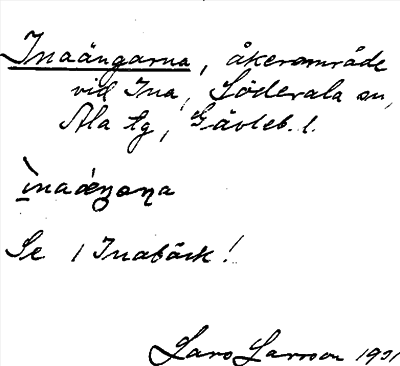 Inaängarna, åkerområde
vid Ina, Söderala sn,
Ala tg, Gävleb. l.
ìnaáŋaṇa
Se / Inabäck!
Lars Larsson 1931